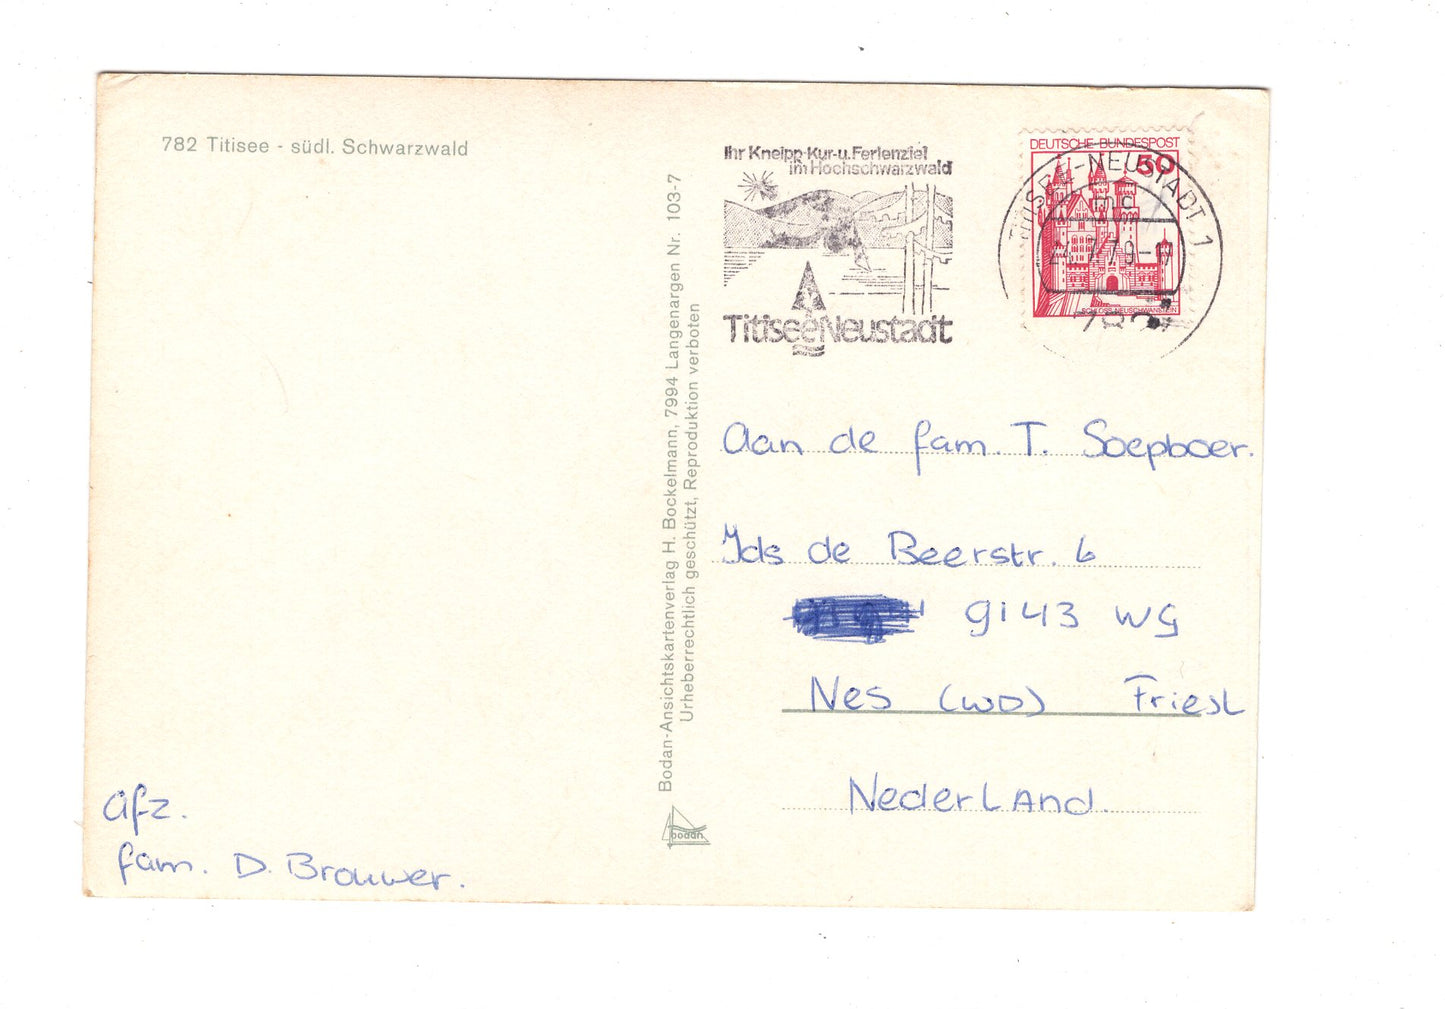 782 Titisee - südl. Schwarzwald
Ihr Kneipp-Kur-u. Ferienziel
im Hochschwarzwald
Titisee Neustadt
DEUTSCHE BUNDESPOST
50
SCHLOSS NEUSCHWANSTEIN
TITISEE-NEUSTADT 1
md
24.7.79-17
782
Bodan-Ansichtskartenverlag H. Bockelmann, 7994 Langenargen Nr. 103-7
Urheberrechtlich geschützt, Reproduktion verboten
bodan
Aan de fam. T. Soepboer.
Ids de Beerstr. 6
9143 WG
Nes (WD) Friesl
Nederland.
Afz.
fam. D. Brouwer.